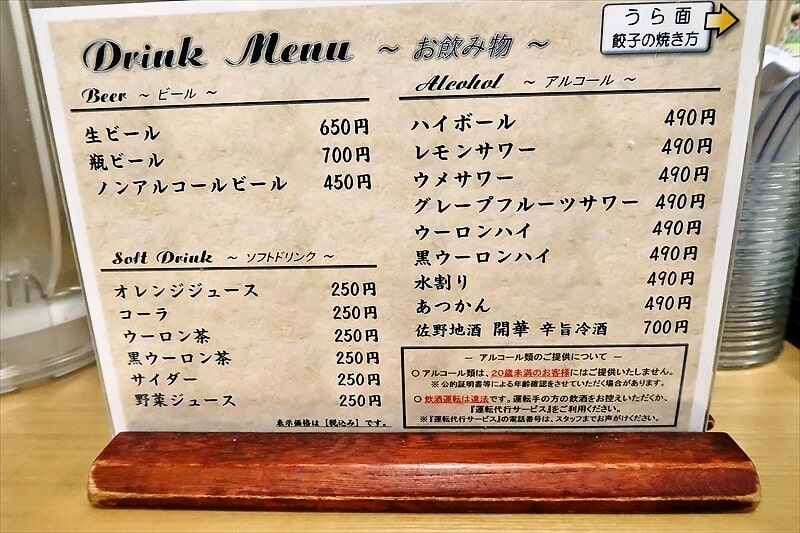 Drink Menu ～ お飲み物 ～
うら面
餃子の焼き方
Beer ～ ビール ～
生ビール 650円
瓶ビール 700円
ノンアルコールビール 450円
Soft Drink ～ ソフトドリンク ～
オレンジジュース 250円
コーラ 250円
ウーロン茶 250円
黒ウーロン茶 250円
サイダー 250円
野菜ジュース 250円
表示価格は［税込み］です。
Alcohol ～ アルコール ～
ハイボール 490円
レモンサワー 490円
ウメサワー 490円
グレープフルーツサワー 490円
ウーロンハイ 490円
黒ウーロンハイ 490円
水割り 490円
あつかん 490円
佐野地酒 開華 辛旨冷酒 700円
― アルコール類のご提供について ―
○ アルコール類は、20歳未満のお客様にはご提供いたしません。
※ 公的証明書等による年齢確認をさせていただく場合があります。
○ 飲酒運転は違法です。運転手の方の飲酒をお控えいただくか、
『運転代行サービス』をご利用ください。
※『運転代行サービス』の電話番号は、スタッフまでお声がけください。